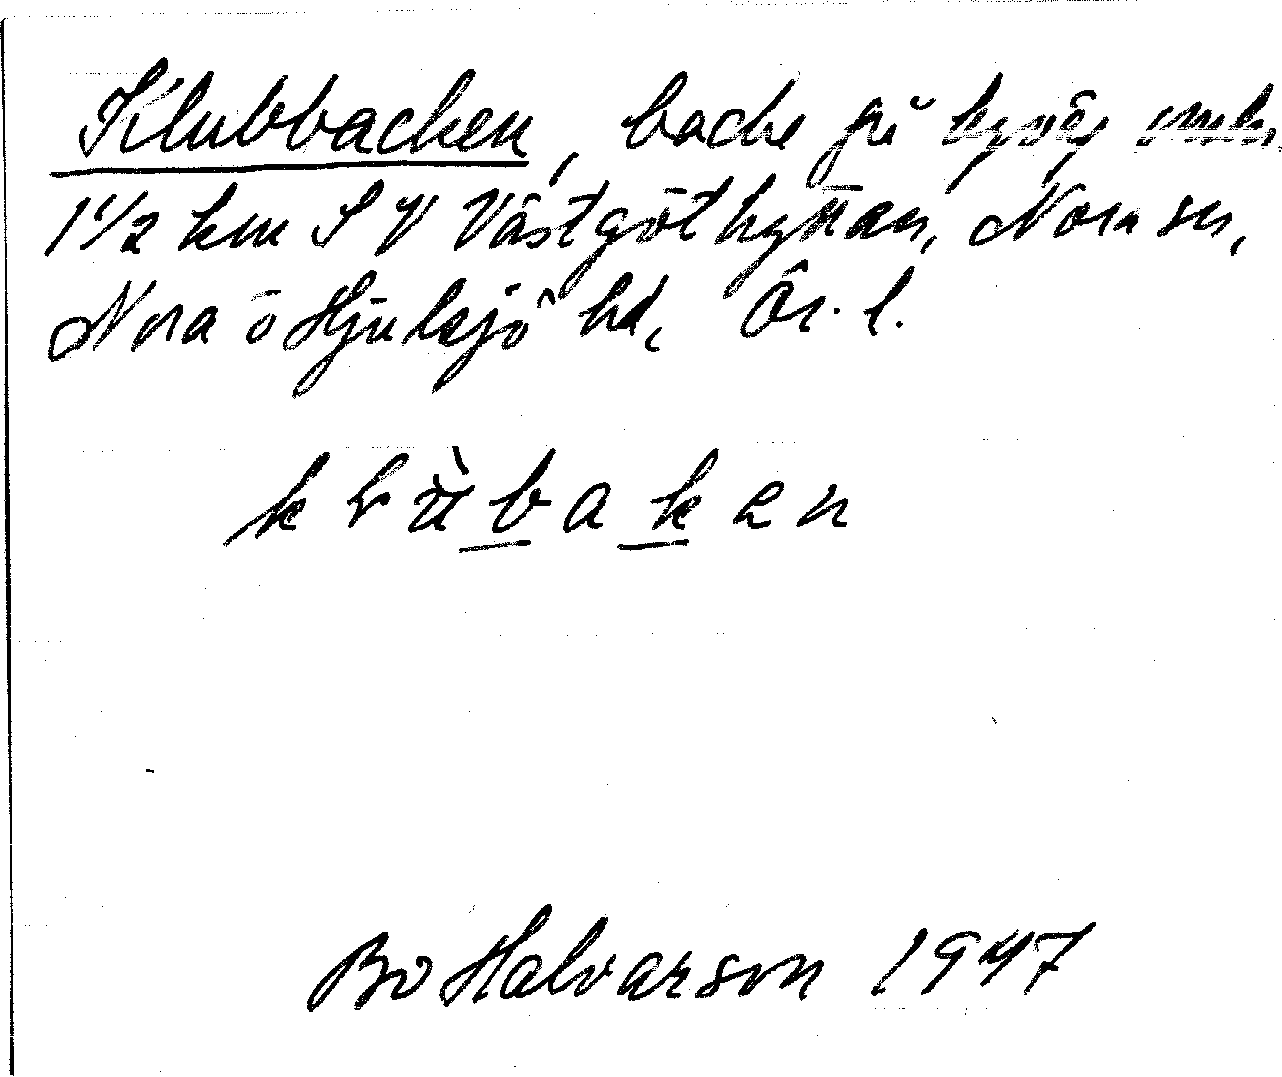 Klubbacken, backe på byväg
1 1/2 km SV Västgöthyttan, Nora sn,
Nora o Hjulsjö hd, Ör. l.
klùbakan
Bo Halvarson 1947